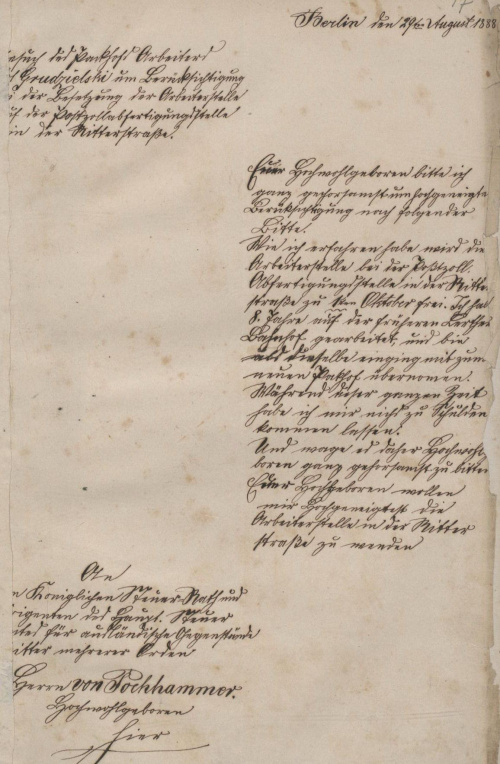 17
Berlin den 29ten August 1888
esuch des Packhofs Arbeiters
Grudzielski um Berücksichtigung
der Besetzung der Arbeiterstelle
uf der Postzollabfertigungsstelle
in der Ritterstraße.
Euer Hochwohlgeboren bitte ich
ganz gehorsamst um hochgeneigte
Berücksichtigung nach folgender
Bitte.
Wie ich erfahren habe wird die
Arbeiterstelle bei der Postzoll.
Abfertigungsstelle in der Ritter
straße zu 1ten Oktober frei. Ich ha
8. Jahre auf der früheren
Bahnhof gearbeitet, und bin
als dieselbe einging mit zum
neuen Pakhof übernomen.
Während diser ganzen Zeit
habe ich mir nichs zu Schulden
kommen lassen.
Und wage es daher Hochwohl
boren ganz gehorsamst zu bitten
Euer Hochgeboren wollen
mir Hochgeneigtest die
Arbeiterstelle in der Ritter
straße zu wenden
An
n Königlichen Steuer-Rath und
irigenten des Haupt. Steuer
mtes für ausländische Gegenstände
itter mehrerer Orden
Herrn von Pochhammer.
Hochwohlgeboren
hier